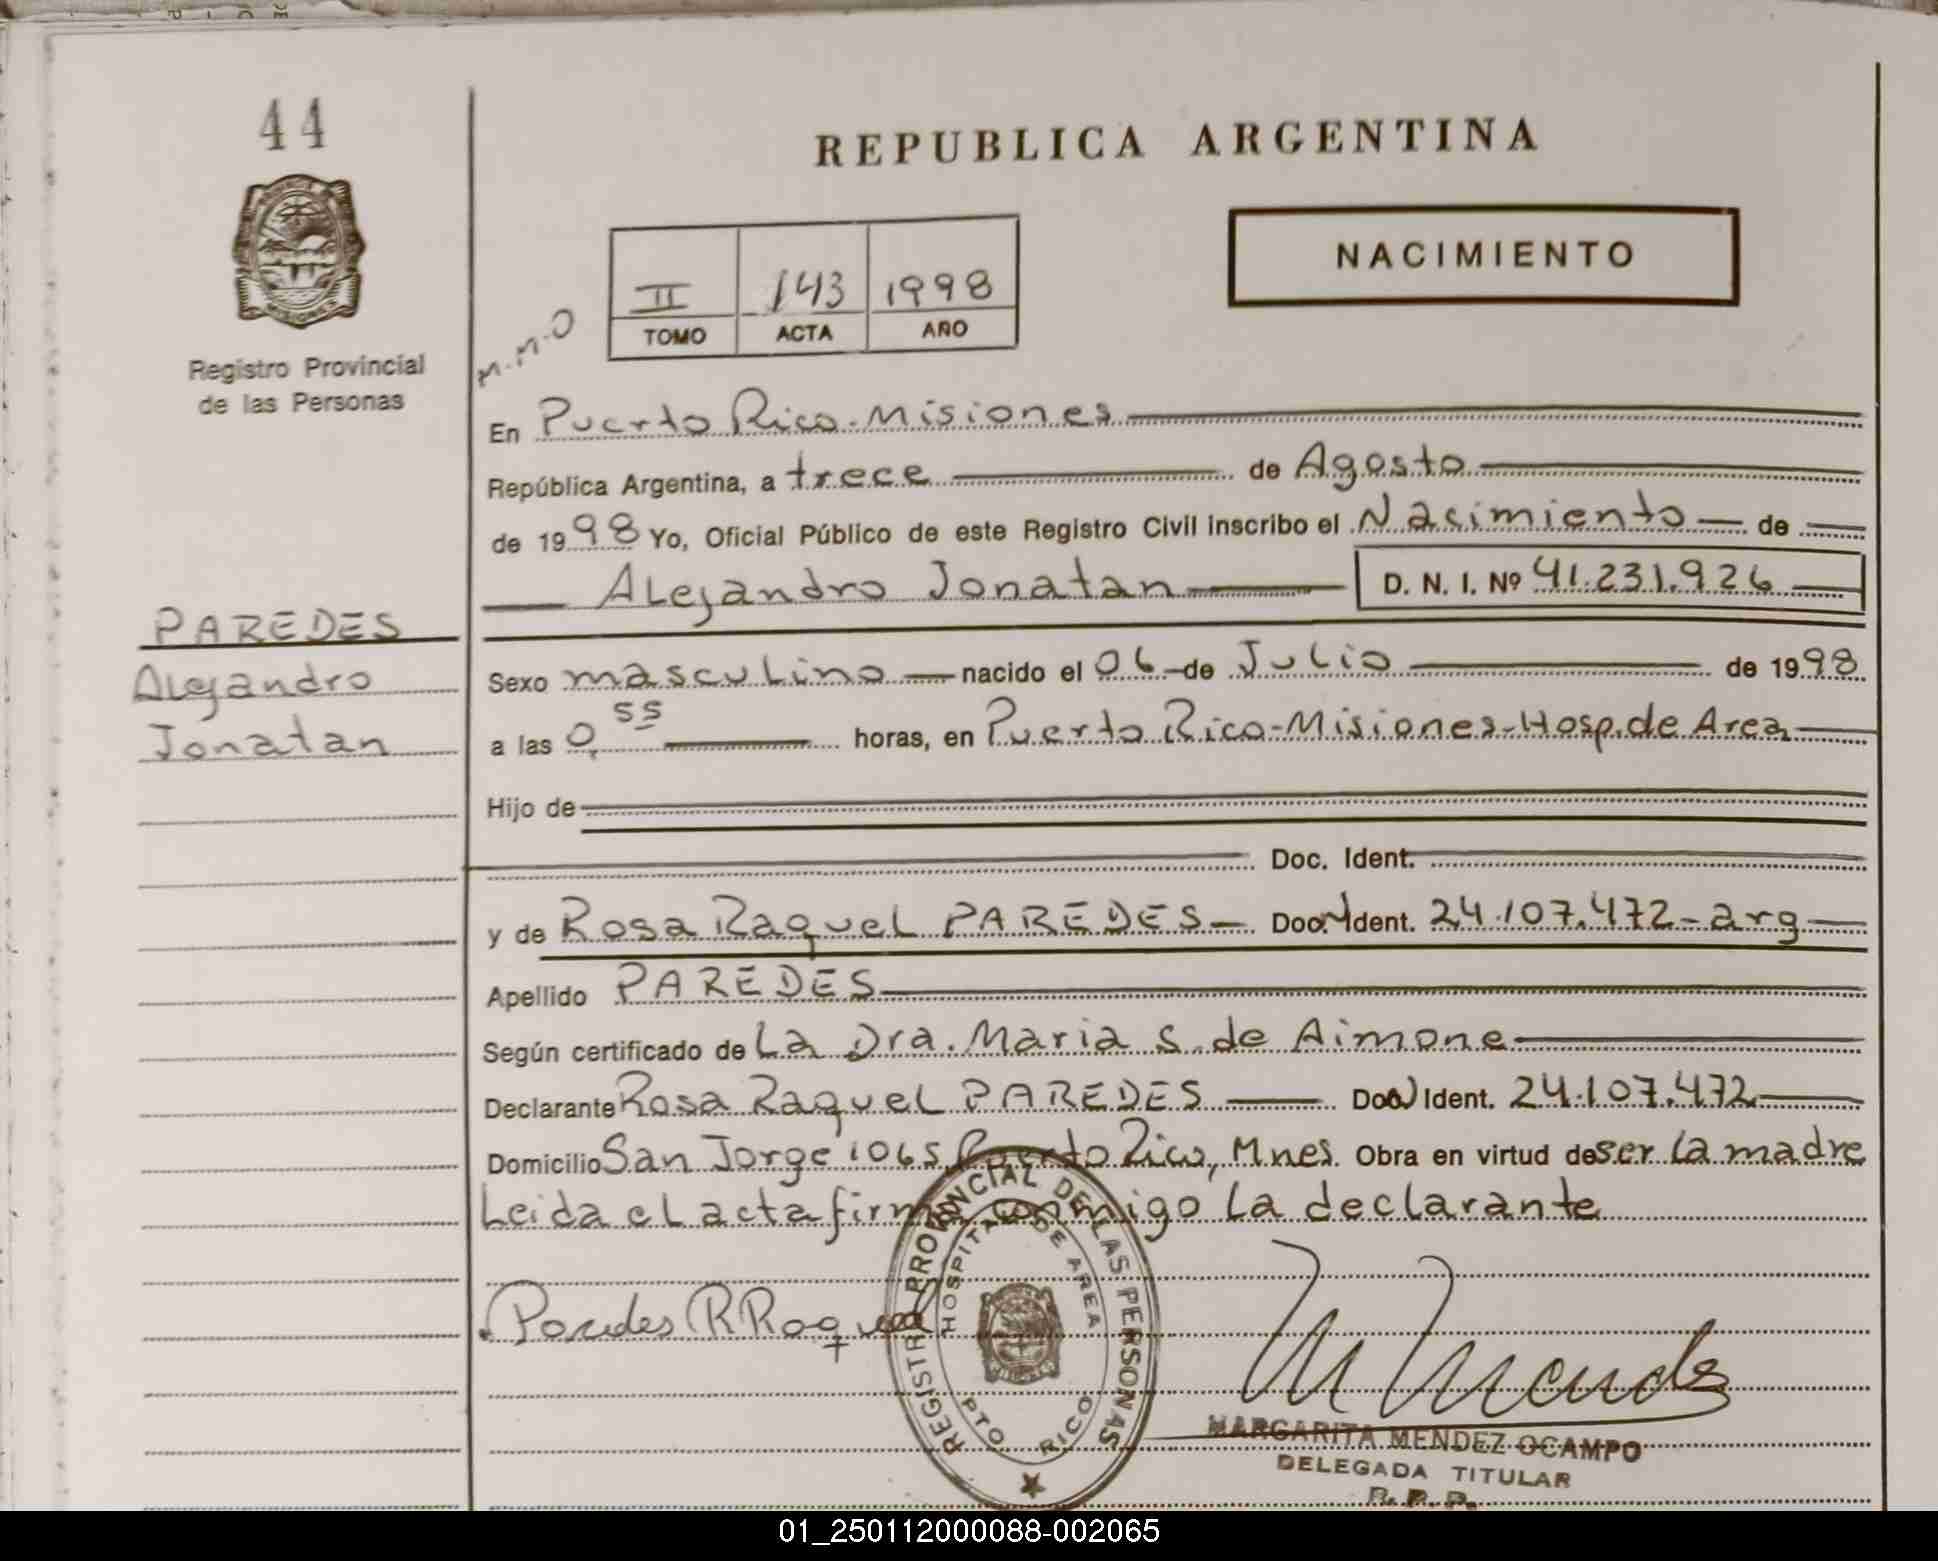 44
REPUBLICA ARGENTINA
NACIMIENTO
II 143 1998
TOMO ACTA AÑO
M.M.O
Registro Provincial
de las Personas
En Puerto Rico-Misiones
República Argentina, a trece de Agosto
de 1998 Yo, Oficial Público de este Registro Civil inscribo el Nacimiento de
Alejandro Jonatan D. N. I. Nº 41.231.926
PAREDES
Alejandro
Jonatan
Sexo masculino nacido el 06 de Julio de 1998
a las 0,55 horas, en Puerto Rico-Misiones-Hosp. de Area
Hijo de
Doc. Ident.
y de Rosa Raquel PAREDES Doc. Ident. 24.107.472-arg
Apellido PAREDES
Según certificado de La Dra. Maria S. de Aimone
Declarante Rosa Raquel PAREDES Doc. Ident. 24.107.472
Domicilio San Jorge 1065, Puerto Rico, Mnes. Obra en virtud de ser la madre
Leida el acta firma conmigo la declarante
Paredes R Raquel
REGISTRO PROVINCIAL DE LAS PERSONAS
HOSPITAL DE AREA
PTO RICO
M Mendez
MARGARITA MENDEZ OCAMPO
DELEGADA TITULAR
R. P. P.
01_250112000088-002065